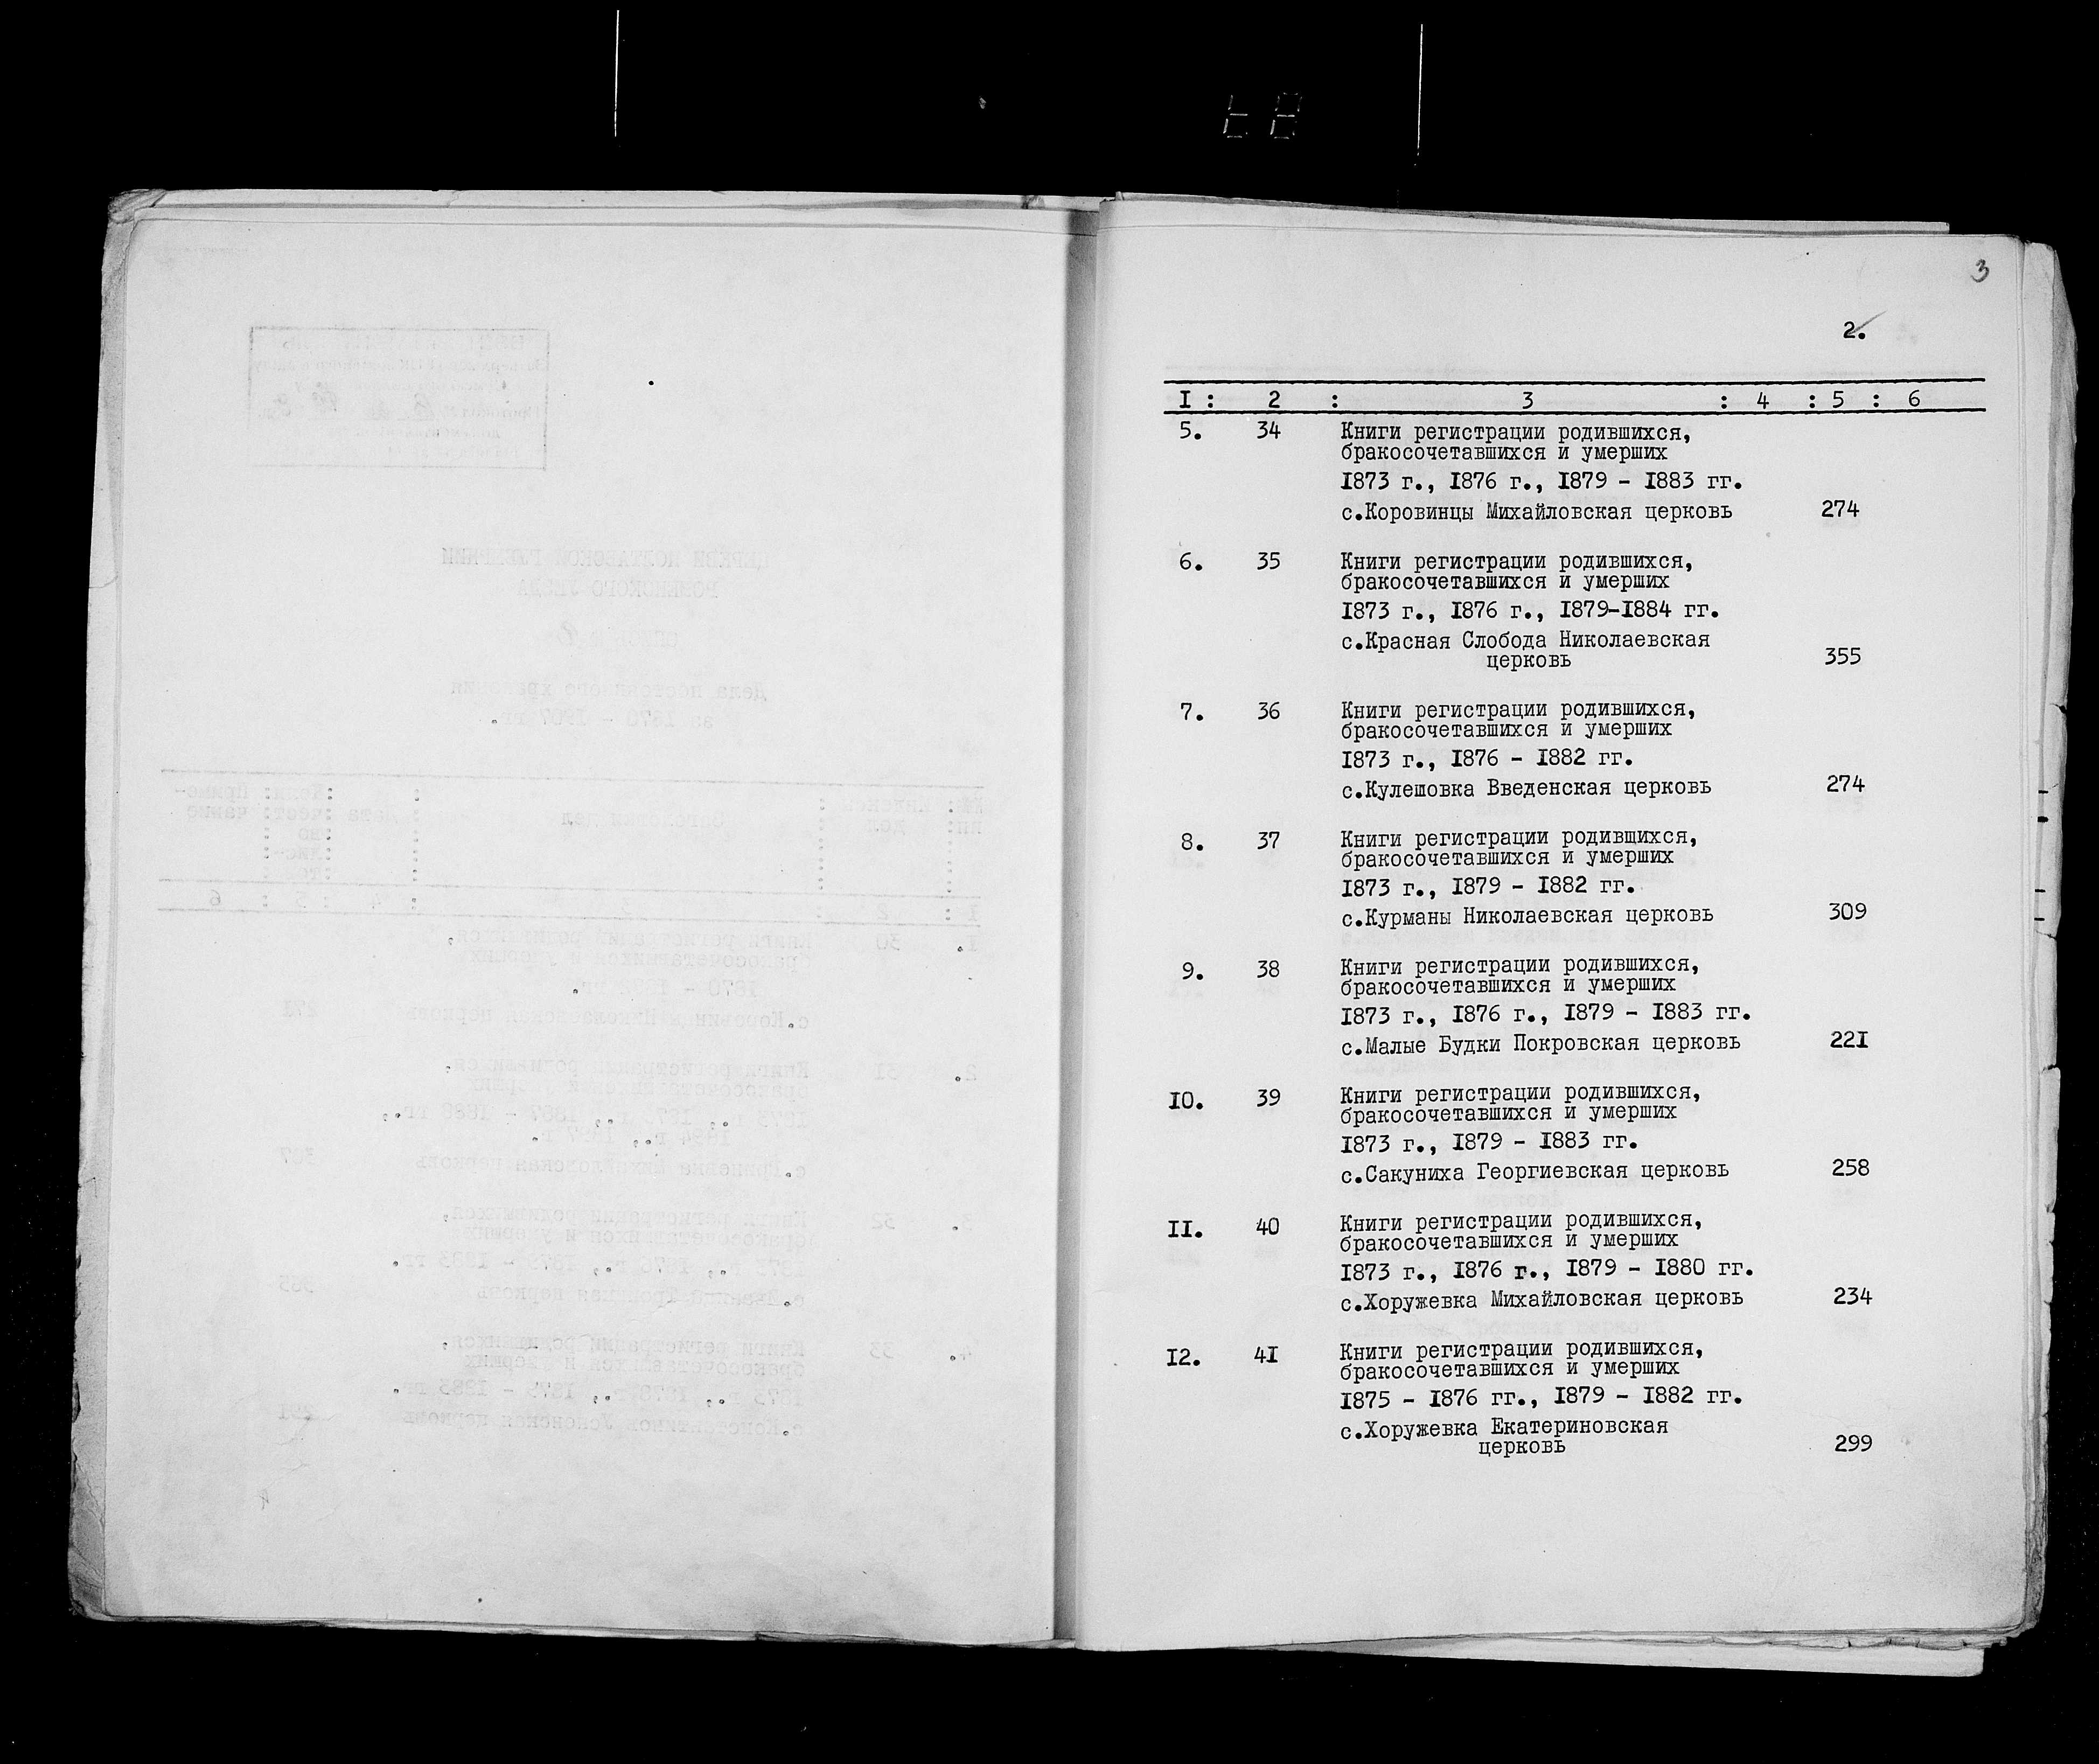 3
2.
I : 2 : 3 : 4 : 5 : 6
5. 34 Книги регистрации родившихся,
бракосочетавшихся и умерших
I873 г., I876 г., I879 - I883 гг.
с.Коровинцы Михайловская церковь 274
6. 35 Книги регистрации родившихся,
бракосочетавшихся и умерших
I873 г., I876 г., I879-I884 гг.
с.Красная Слобода Николаевская
церковь 355
7. 36 Книги регистрации родившихся,
бракосочетавшихся и умерших
I873 г., I876 - I882 гг.
с.Кулешовка Введенская церковь 274
8. 37 Книги регистрации родивщихся,
бракосочетавшихся и умерших
I873 г., I879 - I882 гг.
с.Курманы Николаевская церковь 309
9. 38 Книги регистрации родившихся,
бракосочетавшихся и умерших
I873 г., I876 г., I879 - I883 гг.
с.Малые Будки Покровская церковь 22I
I0. 39 Книги регистрации родившихся,
бракосочетавшихся и умерших
I873 г., I879 - I883 гг.
с.Сакуниха Георгиевская церковь 258
II. 40 Книги регистрации родившихся,
бракосочетавшихся и умерших
I873 г., I876 г., I879 - I880 гг.
с.Хоружевка Михайловская церковь 234
I2. 4I Книги регистрации родившихся,
бракосочетавшихся и умерших
I875 - I876 гг., I879 - I882 гг.
с.Хоружевка Екатериновская
церковь 299